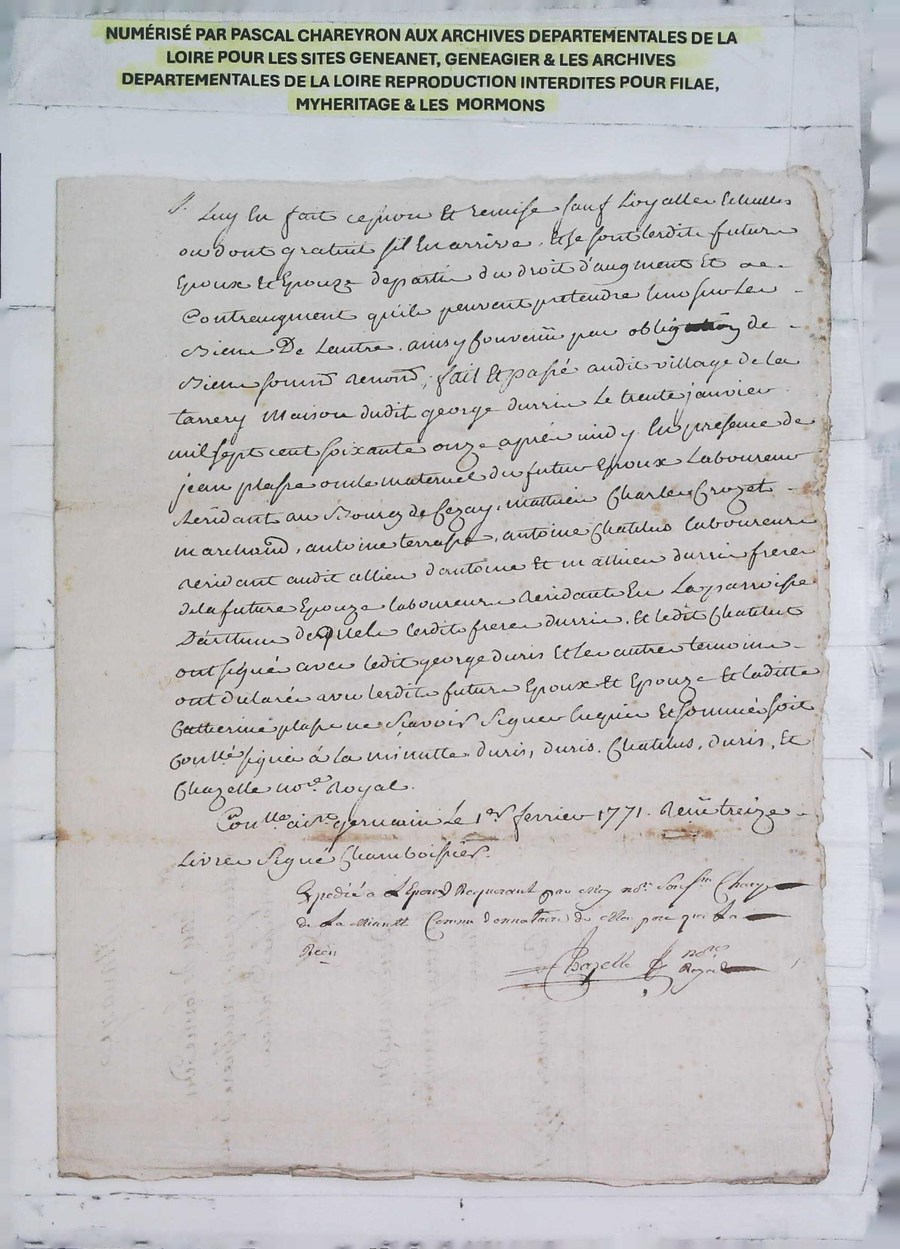 NUMÉRISÉ PAR PASCAL CHAREYRON AUX ARCHIVES DEPARTEMENTALES DE LA
LOIRE POUR LES SITES GENEANET, GENEAGIER & LES ARCHIVES
DEPARTEMENTALES DE LA LOIRE REPRODUCTION INTERDITES POUR FILAE,
MYHERITAGE & LES MORMONS
Luy En fait cession Et remise sauf
ou dont gratuit sil En arrive. Et se sont lesdits futurs
Epoux Et Epouze departis du droit d'augment Et de
Contreaugment qu'ils peuvent pretendre lun sur Les
Biens De Lautre. ainsy Convenu par obligation de
Biens soumis renoncé, fait Et passé audit village de la
tarrery Maison dudit george durris Le trente janvier
mil sept cent soixante onze après midy. En presence de
jean plasse oncle maternel du futur Epoux Laboureur
Residant au Bourg de Cezay, mathieu Charles Crozet
marchand, antoine terrasse, antoine Chatelus laboureurs
residant audit allieu d'antoine Et mathieu durris freres
de la future Epouze laboureurs Residants En La parroisse
D'arthun desquels lesdits freres durris. Et ledit Chatelus
ont signé avec ledit george duris Et Les autres temoins
ont declaré avec lesdits futurs Epoux Et Epouze Et laditte
Catherine plasse ne sçavoir Signer Enquis Et sommés soit
Conllé signé à La minutte duris, duris. Chatelus, duris, Et
Chazelle nore Royal.
Conllé a St germain Le 1er fevrier 1771. Reçu treize
Livres Signé Chamboissier.
Expedié a Requerant par Moy nore Chargé
de La Minutte Comme donnataire de
Reçu
Chazelle nore
Royal